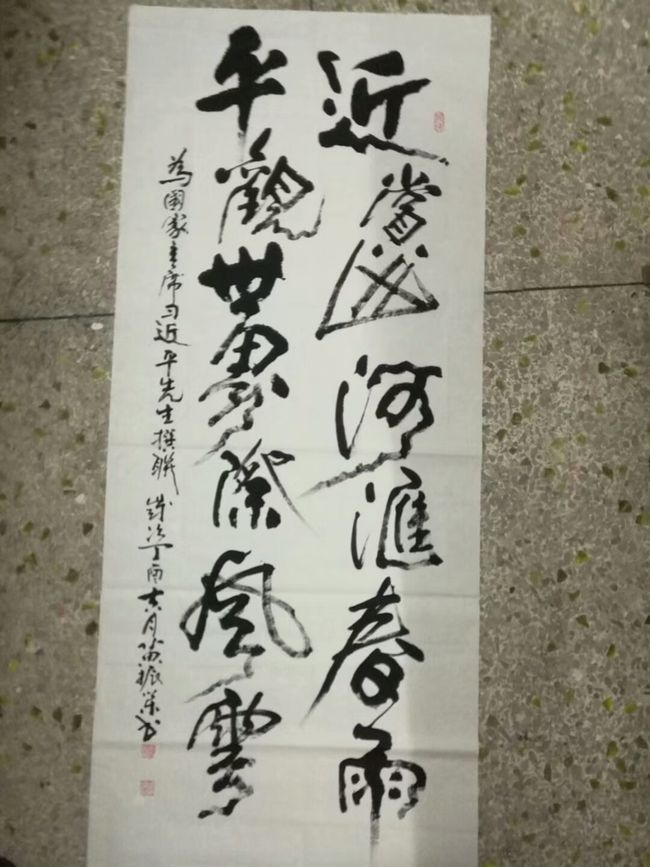 近賞山河匯春雨
平觀世界際風雲
為國家主席习近平先生撰聯 歲次丁酉吉月陈振荣书